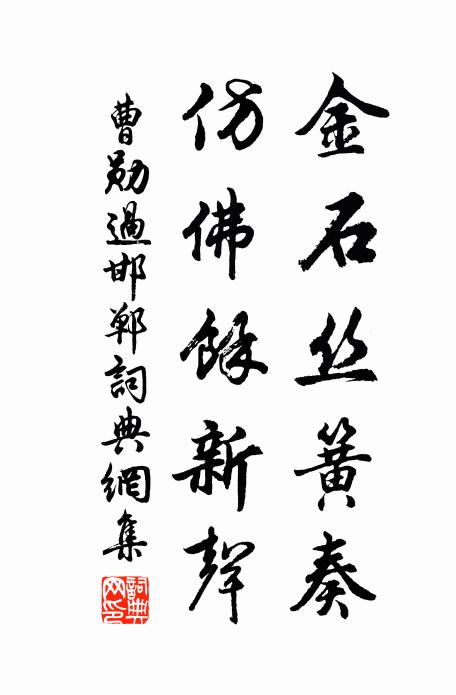 金石丝簧奏
仿佛餘新聲
曹勛過邯鄲詞典網集
詞典
网印